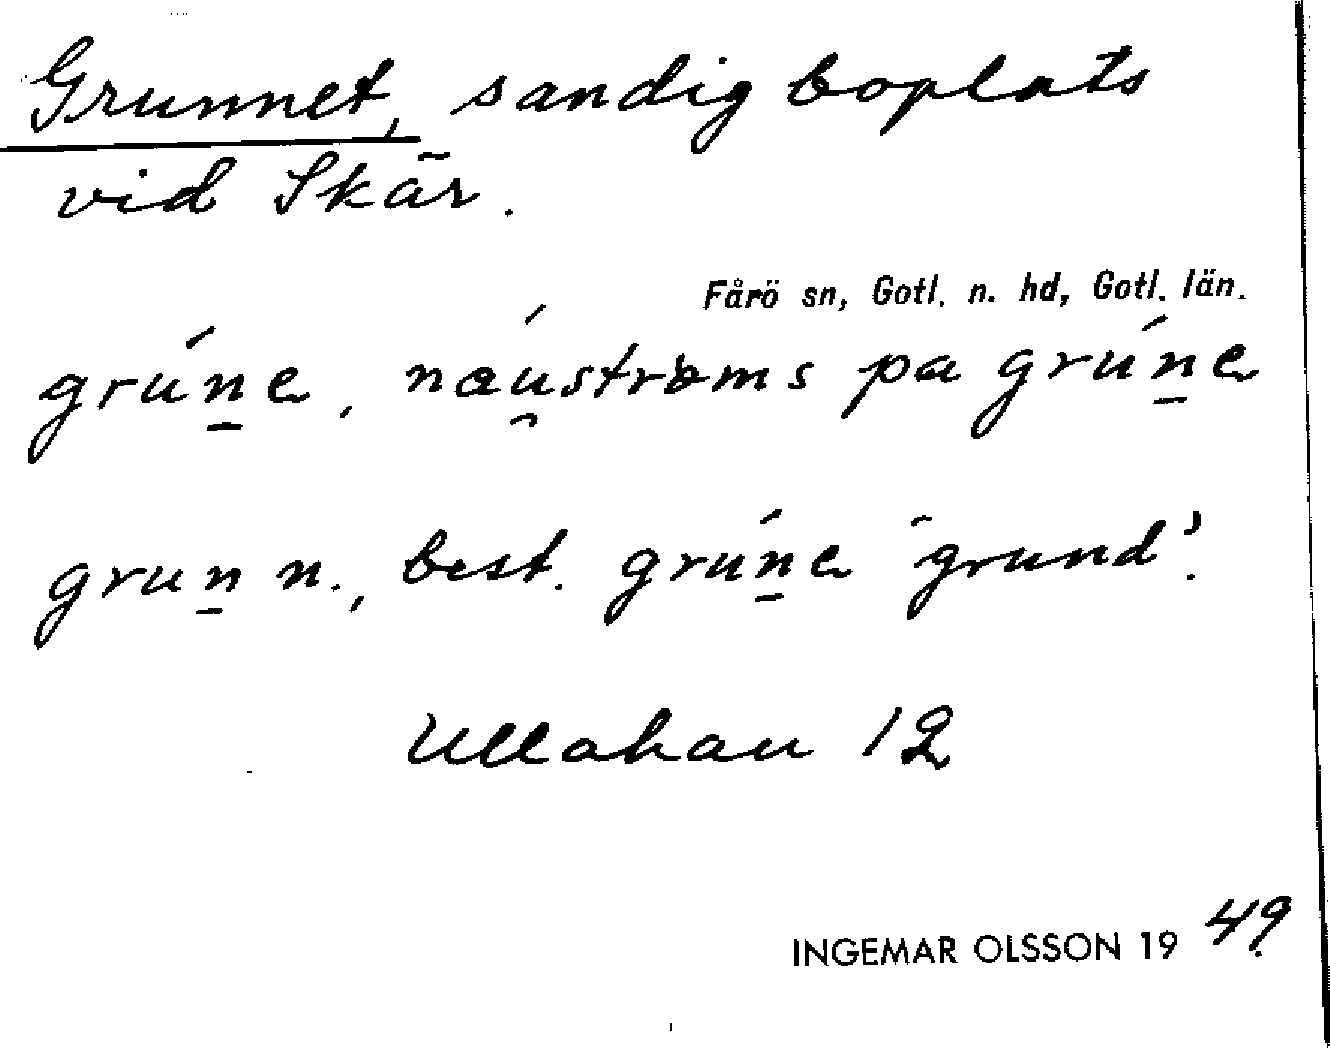 Grunnet, sandig boplats
vid Skär.
Fårö sn, Gotl. n. hd, Gotl. län.
grúṉe, náu̯strøms pa grúṉe
gruṉ n., best. grúṉe 'grund'.
Ullahau 12
INGEMAR OLSSON 1949.